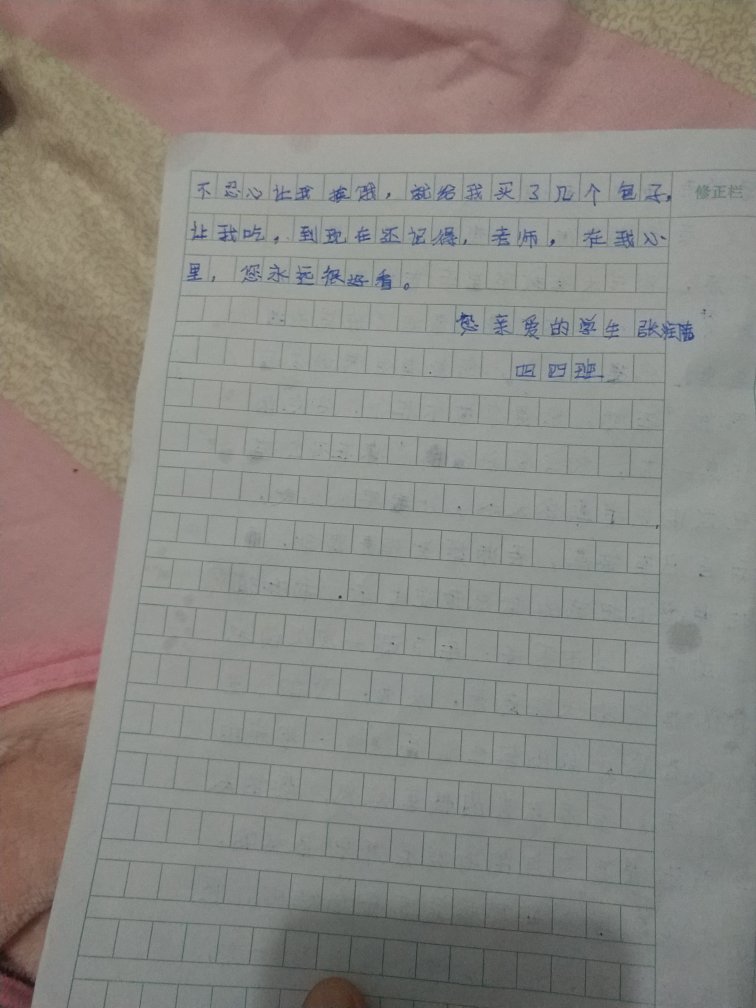 不忍心让我挨饿，就给我买了几个包子，
修正栏
让我吃，到现在还记得，老师，在我心
里，您永远很好看。
您亲爱的学生 张
四四班